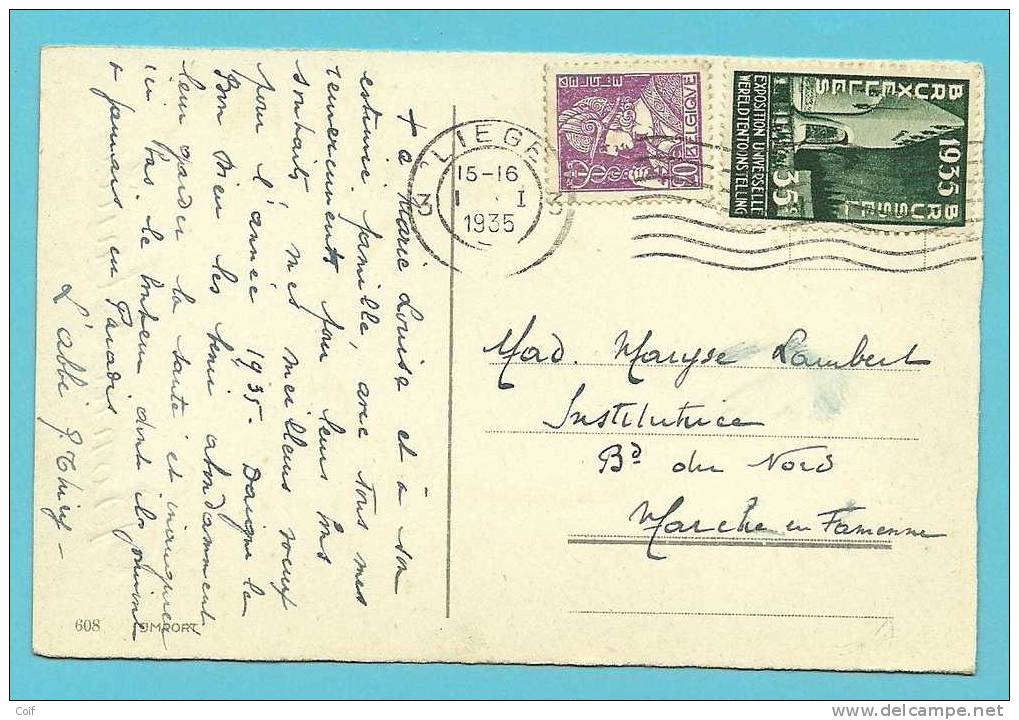 + a Marie Louise et à son
estimée famille, avec tous mes
remerciements pour leurs bons
souhaits mes meilleurs voeux
pour l'année 1935. Daigne le
Bon Dieu les bénir abondamment
leur garder la santé et
ici bas le bonheur dont ils jouiront
à jamais en Paradis
L'abbé
608 IMPORT
LIEGE
3 3
15-16
1 . I
1935
BELGIQUE
BELGIE
50c
1935
BRUXELLES
BRUSSEL
EXPOSITION UNIVERSELLE
WERELDTENTOONSTELLING
35c
Mad. Maryse Lambert
Institutrice
Bd du Nord
Marche en Famenne
Coif
www.delcampe.net